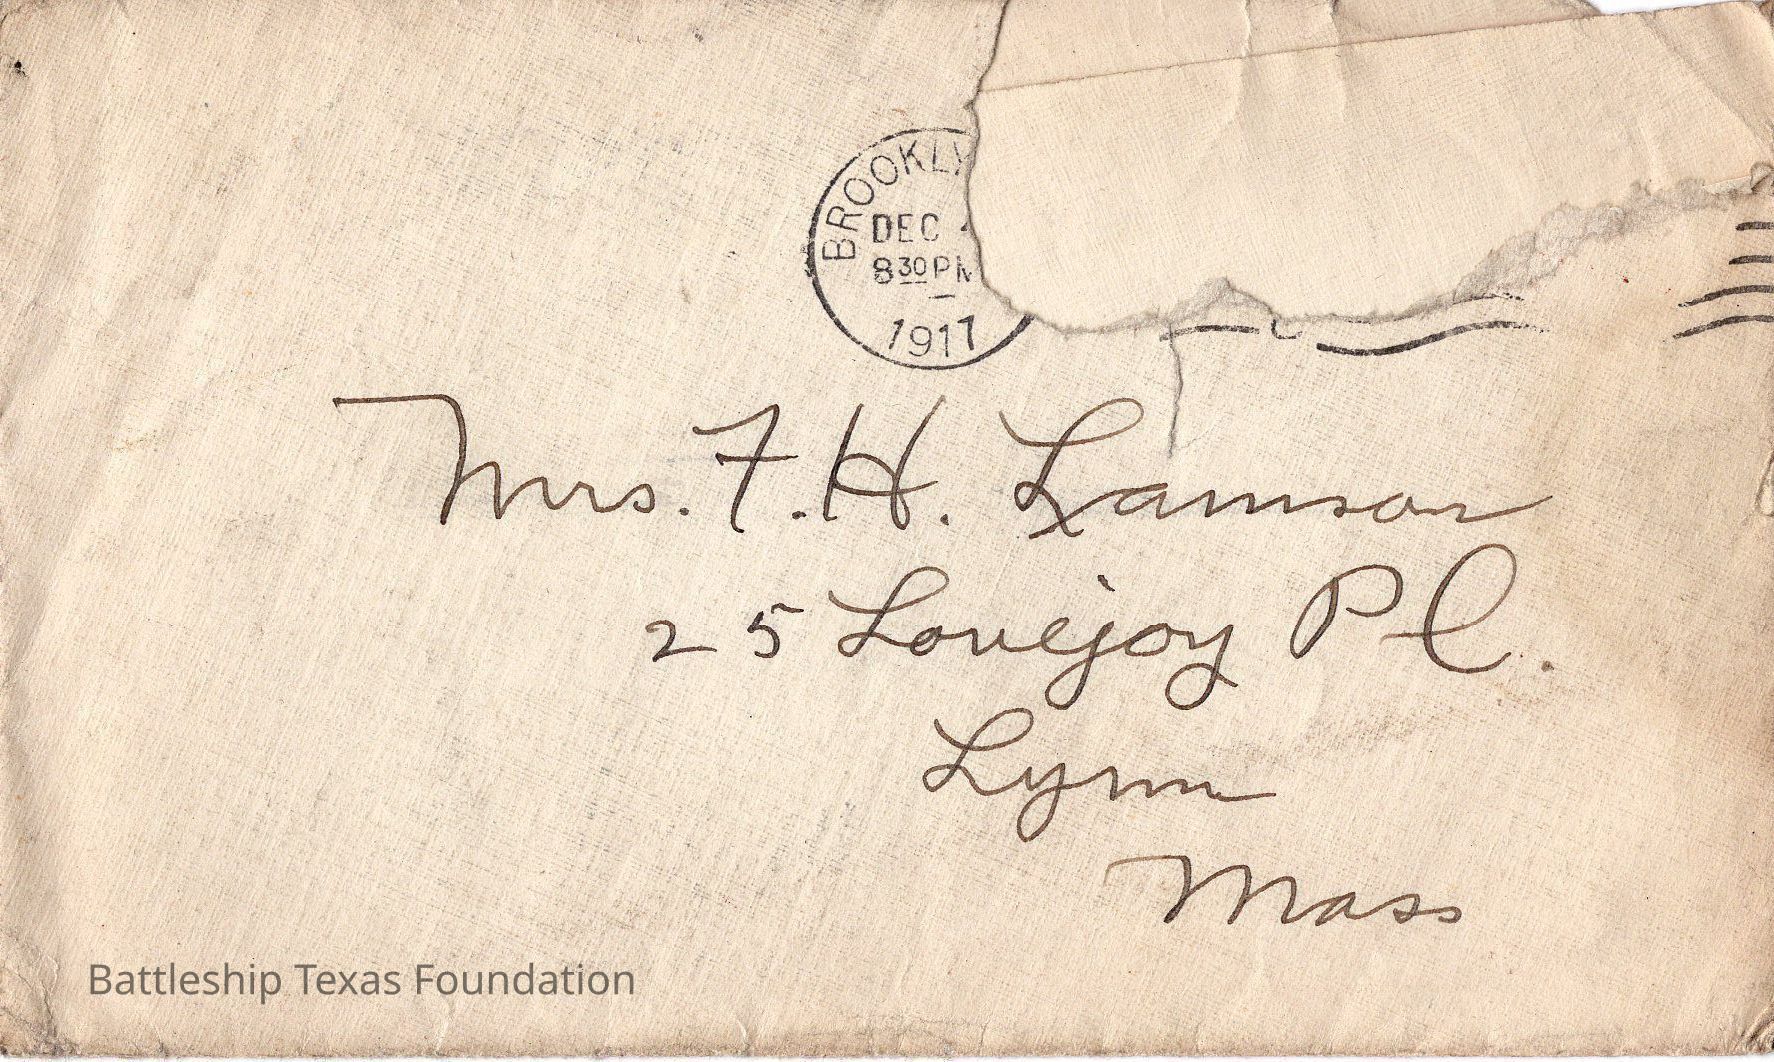 BROOKLY
DEC
8 30 PM
1917
Mrs. F. H. Lamson
25 Lovejoy Pl.
Lynn
Mass
Battleship Texas Foundation